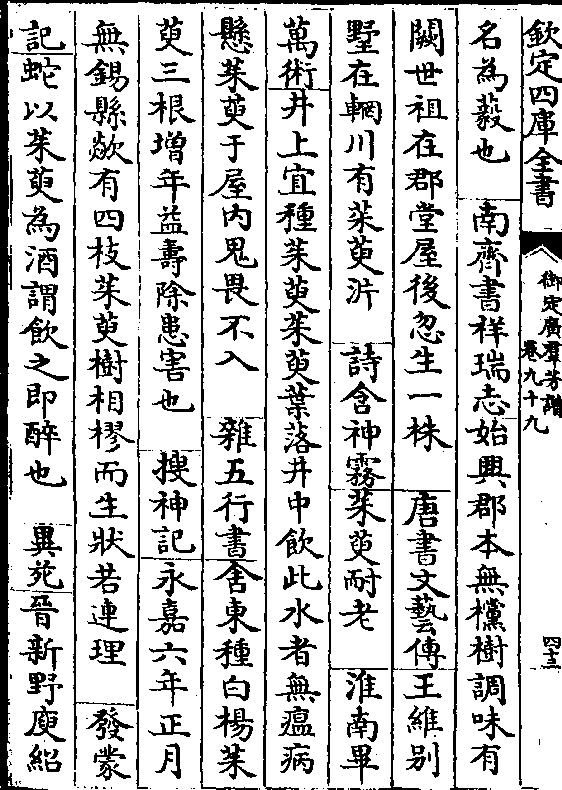 欽定四庫全書
御定廣羣芳譜
卷九十九
四十三
名為藙也　南齊書祥瑞志始興郡本無欓樹調味有
闕世祖在郡堂屋後忽生一株　唐書文藝傳王維别
墅在輞川有茱萸沜　詩含神霧茱萸耐老　淮南畢
萬術井上宜種茱萸茱萸葉落井中飲此水者無瘟病
懸茱萸于屋内鬼畏不入　雜五行書舍東種白楊茱
萸三根增年益壽除患害也　搜神記永嘉六年正月
無錫縣歘有四枝茱萸樹相樛而生狀若連理　發蒙
記蛇以茱萸為酒謂飲之即醉也　異苑晉新野庾紹